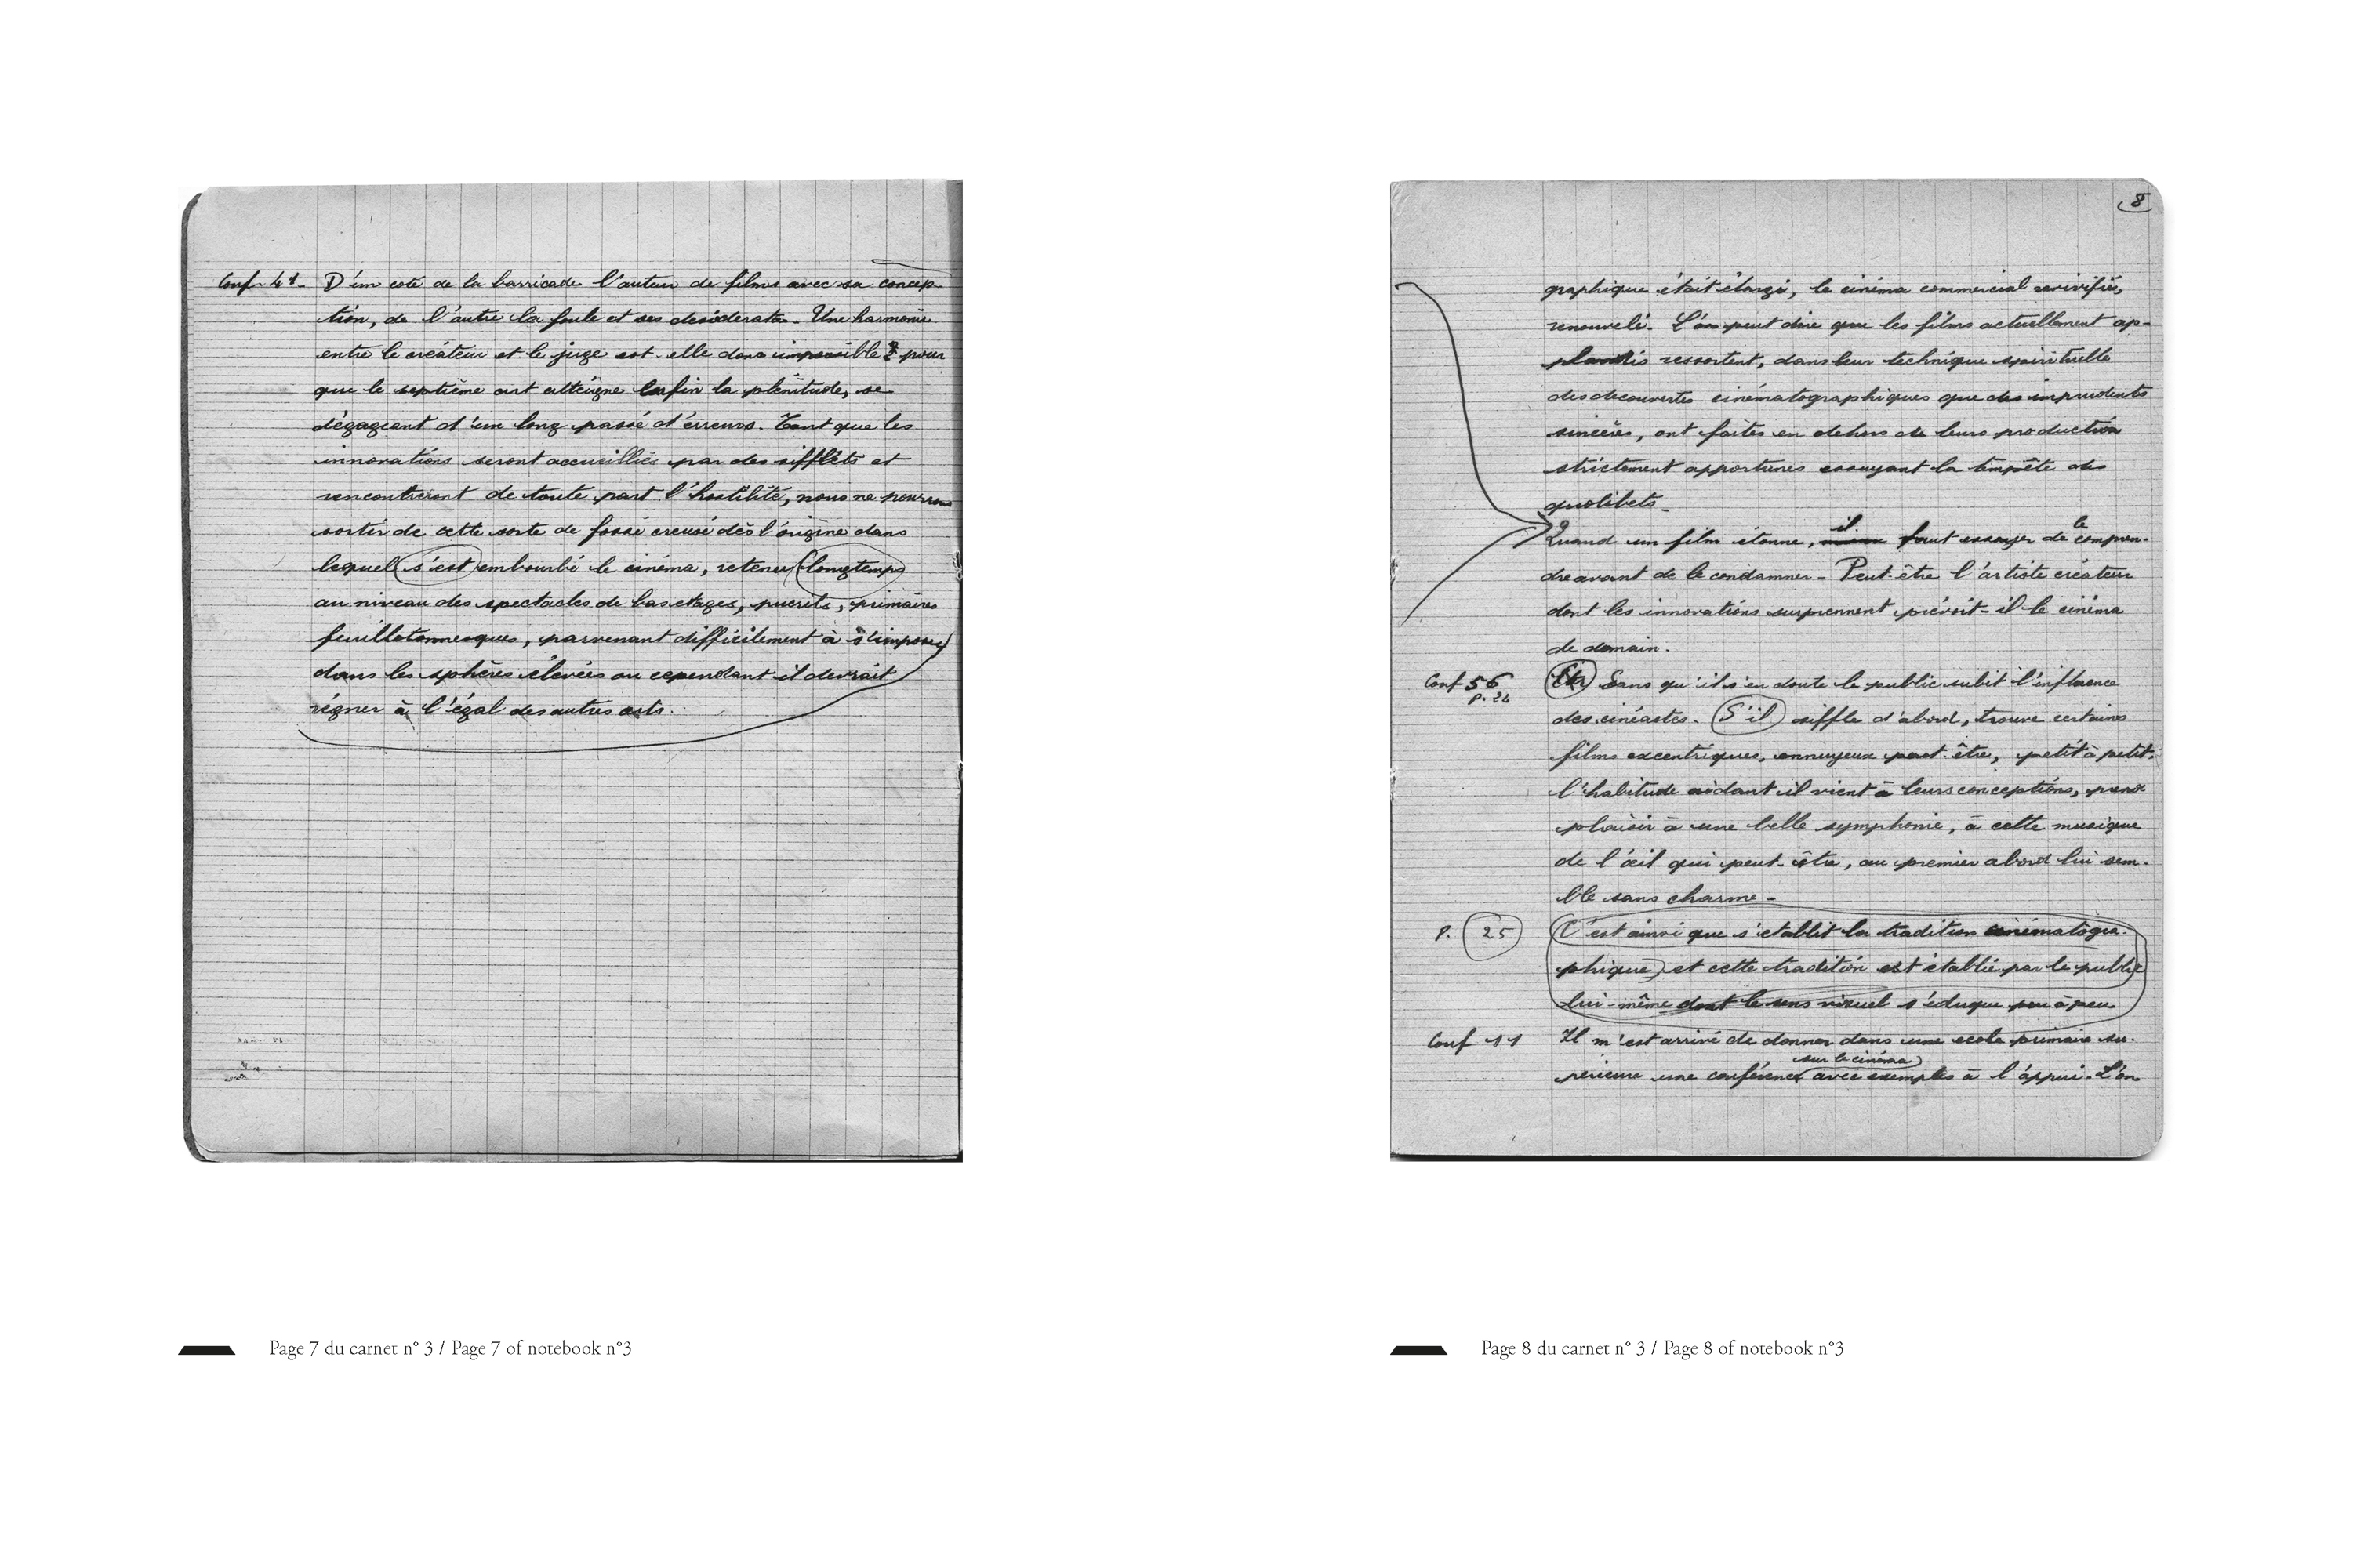 Conf. 41- D'un coté de la barricade l'auteur de films avec sa concep
tion, de l'autre la foule et ses desiderata. Une harmonie
entre le créateur et le juge est-elle donc impossible ? pour
que le septième art atteigne enfin la plénitude, se
dégageant d'un long passé d'erreurs. Tant que les
innovations seront accueillies par des sifflets et
rencontreront de toute part l'hostilité, nous ne pourrons
sortir de cette sorte de fossé creusé dès l'origine dans
lequel s'est embourbé le cinéma, retenu longtemps
au niveau des spectacles de bas etages, puerils, primaires
feuilletonnesques, parvenant difficilement à s'imposer
dans les sphères élevées ou cependant il devrait
régner à l'égal des autres arts.
Page 7 du carnet n° 3 / Page 7 of notebook n°3
8
graphique était élargi, le cinéma commercial revivifié,
renouvelé. L'on peut dire que les films actuellement ap-
plaudis ressortent, dans leur technique spirituelle
des decouvertes cinématographiques que des imprudents
sincères, ont faites en dehors de leurs production
strictement opportunes essuyant la tempête des
quolibets.
il le
Quand un film étonne, faut essayer de compren-
dre avant de le condamner - Peut-être l'artiste créateur
dont les innovations surprennent prévoit-il le cinéma
de demain.
Conf 56 Sans qu'il s'en doute le public subit l'influence
p. 24
des cinéastes. S'il siffle d'abord, trouve certains
films excentriques, ennuyeux peut-être, petit à petit,
l'habitude aidant il vient à leurs conceptions, prend
plaisir à une belle symphonie, à cette musique
de l'œil qui peut-être, au premier abord lui sem-
ble sans charme -
P. 25 C'est ainsi que s'etablit la tradition cinématogra-
phique et cette tradition est établie par le public
lui-même dont le sens visuel s'éduque peu à peu
Conf 11 Il m'est arrivé de donner dans une ecole primaire su-
sur le cinéma
perieure une conférence avec exemples à l'appui. L'on
Page 8 du carnet n° 3 / Page 8 of notebook n°3